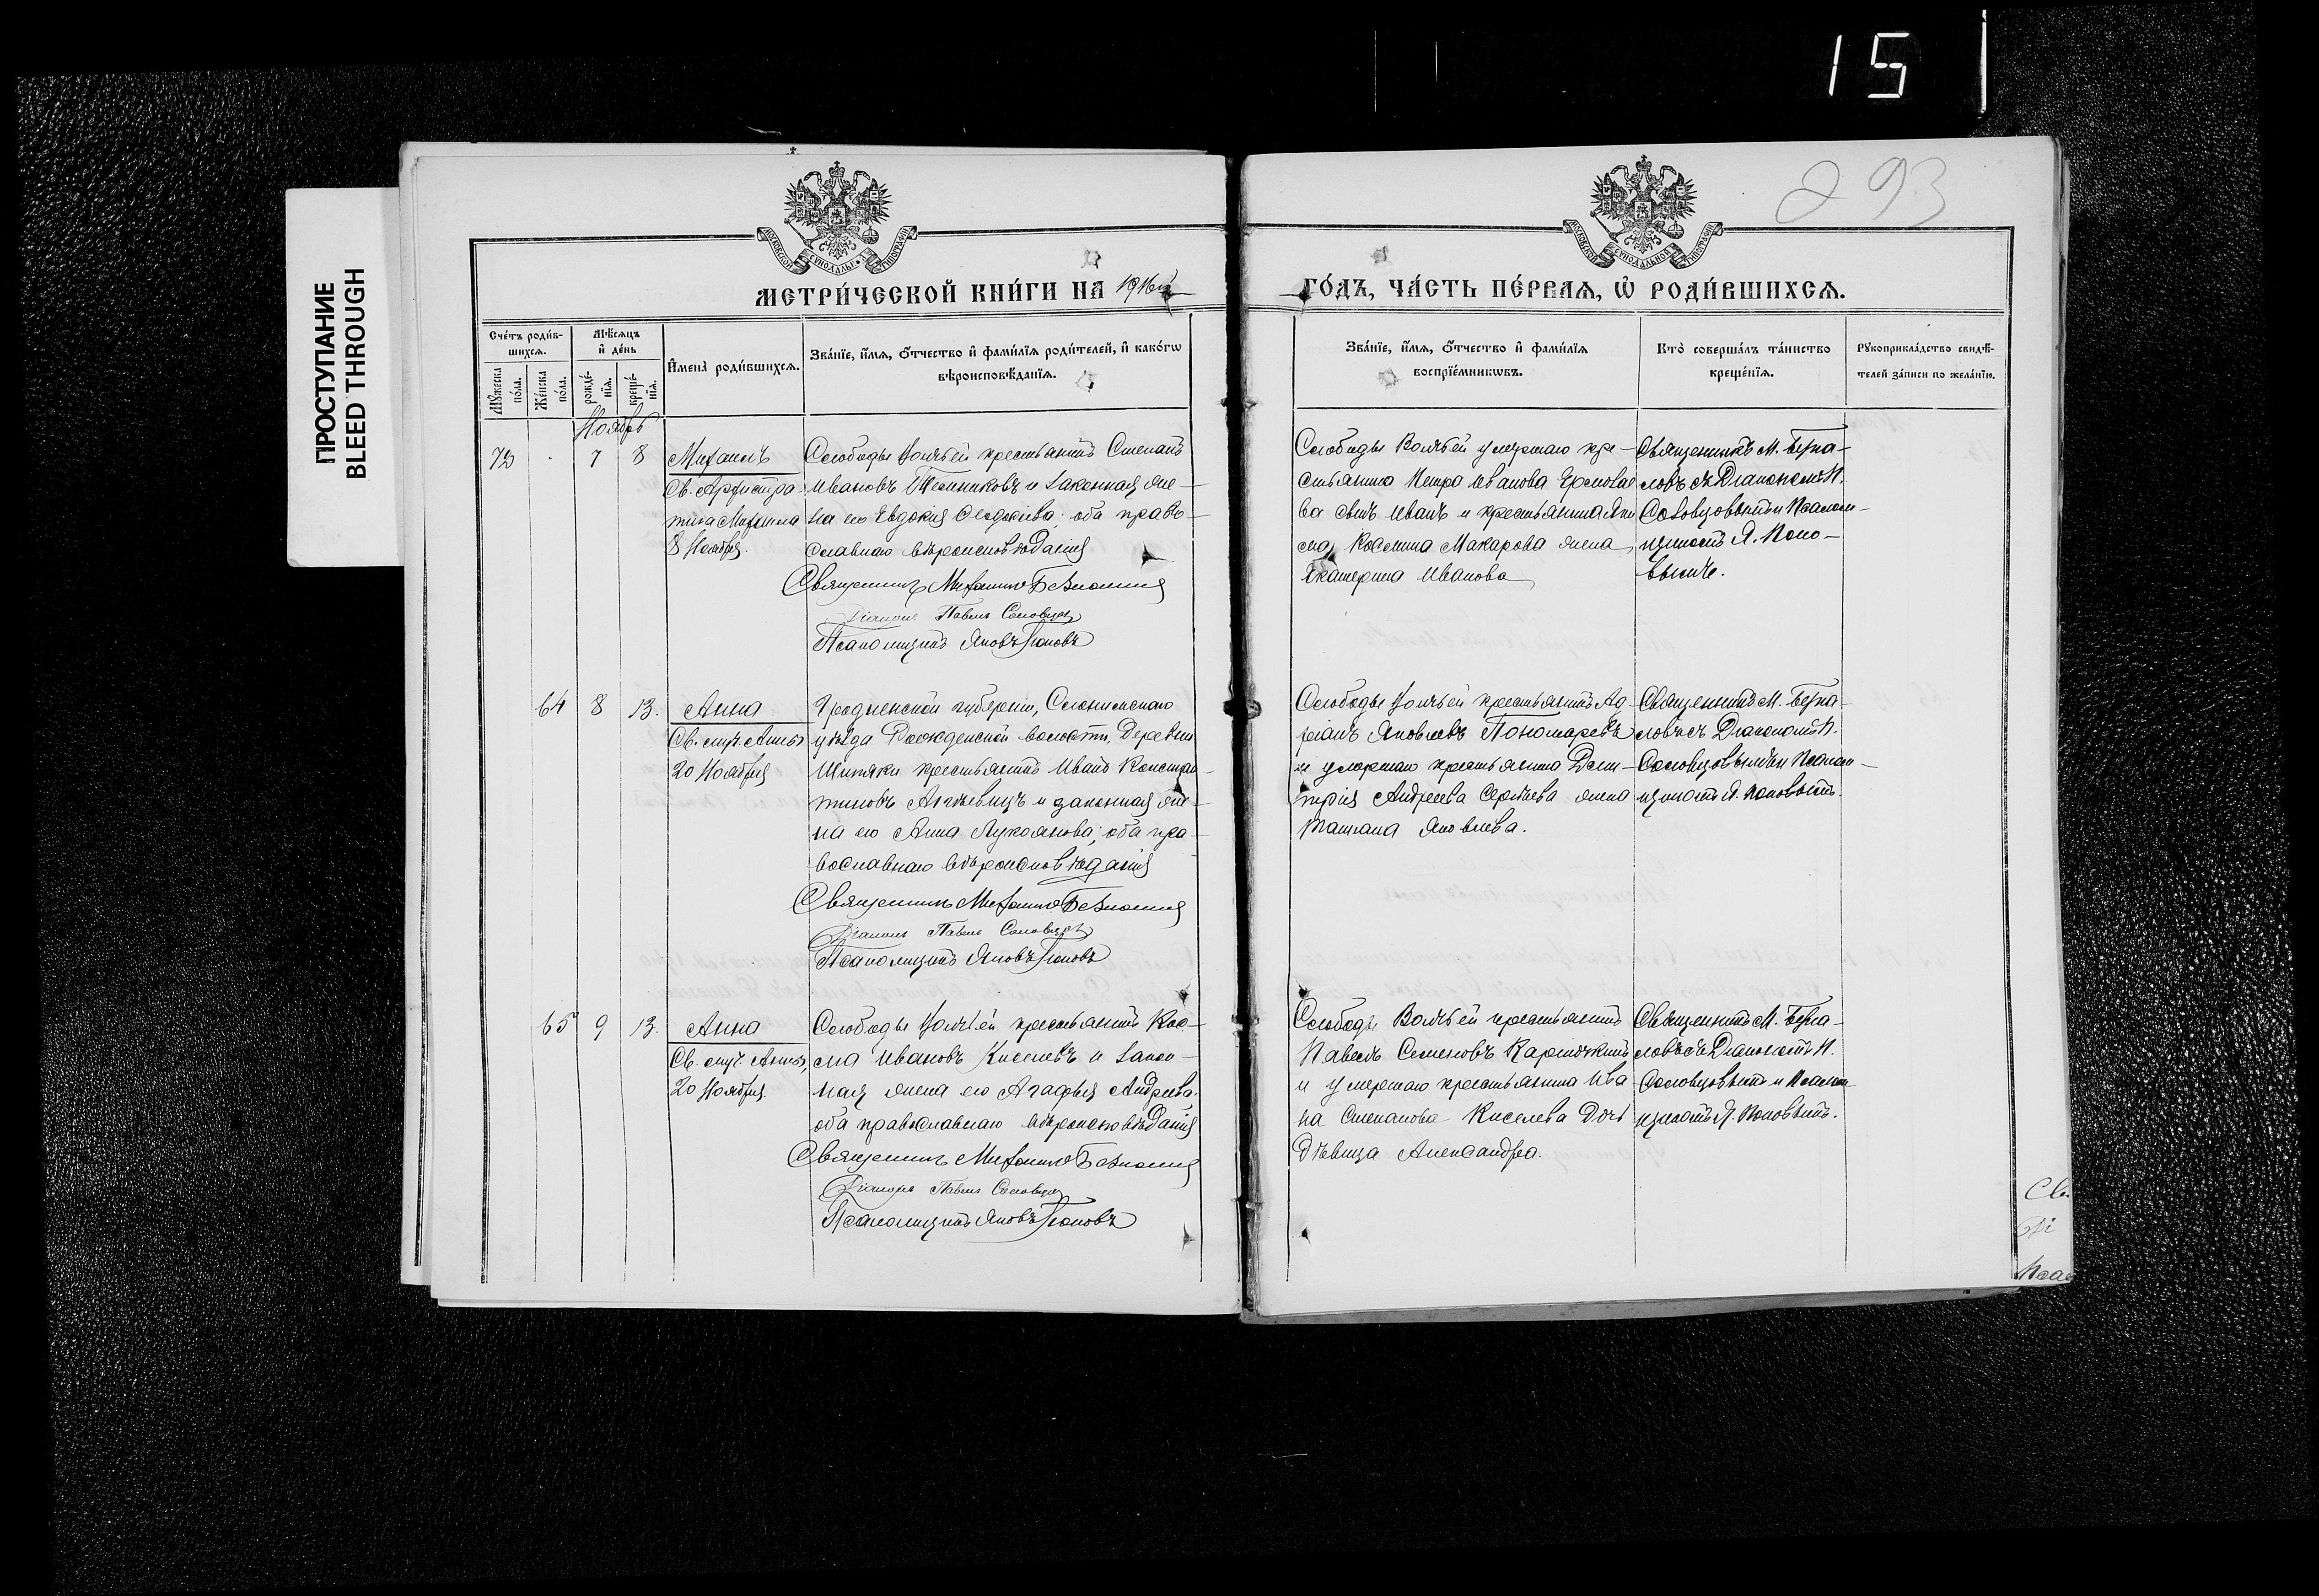 15
ПРОСТУПАНИЕ
BLEED THROUGH
293
МОСКОВСКОЙ СѴНОДАЛЬНОЙ ТИПОГРАФІИ
МОСКОВСКОЙ СѴНОДАЛЬНОЙ ТИПОГРАФІИ
МЕТРИ́ЧЕСКОЙ КНИ́ГИ НА 1916й
ГО́ДЪ, ЧА́СТЬ ПЕ́РВАЯ, Ѡ РОДИ́ВШИХСЯ.
Сче́тъ роди́в-
шихся.
Мѣ́сяцъ
и де́нь
Имена̀ роди́вшихся.
Зва́нїе, и́мя, о́тчество и фами́лїя роди́телей, и како́гѡ
вѣроисповѣ́данїя.
Му́жеска
по́ла.
Же́нска
по́ла.
рожде́-
нїя.
креще́-
нїя.
Зва́нїе, и́мя, о́тчество и фами́лїя
воспрїе́мникѡвъ.
Кто̀ соверша́лъ та́инство
креще́нїя.
Рꙋкоприкла́дство свидѣ́-
телей за́писи по жела́нїю.
Ноябрь
7 8 Михаилъ
Св. Архистра-
тига Михаила
8 Ноября.
Слободы Волчьей крестьянинъ Степанъ
Ивановъ и законная же-
на его Евдокія; оба право-
славнаго вѣроисповѣданія
Священникъ Михаилъ
Діаконъ Павелъ Соловцовъ
Псаломщикъ Яковъ Поповъ
Слободы Волчьей умершаго кре-
стьянина Петра Иванова
ва сынъ Иванъ и крестьянина
Макарова жена
Екатерина Иванова
Священникъ М.
съ Діакономъ П.
Соловцовымъ и Псалом-
щикомъ Я. Попо-
вымъ.
64 8 13. Анна
Св. муч. Анны
20 Ноября
Гродненской губерніи, Слонимскаго
уѣзда волости, деревни
крестьянинъ Иванъ Констан-
тиновъ и законная же-
на его Анна Лукоянова; оба пра-
вославнаго вѣроисповѣданія
Священникъ Михаилъ
Діаконъ Павелъ Соловцовъ
Псаломщикъ Яковъ Поповъ
Слободы Волчьей крестьянинъ Ад-
ріанъ Яковлевъ Пономаревъ
и умершаго крестьянина Дими-
трія Андреева Сергѣева жена
Татіана Яковлева.
Священникъ М.
съ Діакономъ П.
Соловцовымъ и Псалом-
щикомъ Я. Поповымъ.
65 9 13. Анна
Св. муч. Анны,
20 Ноября.
Слободы Волчьей крестьянинъ Кос-
ма Ивановъ Киселевъ и закон-
ная жена его Агафья Андреева;
оба православнаго вѣроисповѣданія
Священникъ Михаилъ
Діаконъ Павелъ Соловцовъ
Псаломщикъ Яковъ Поповъ
Слободы Волчьей крестьянинъ
Павелъ Семеновъ
и умершаго крестьянина Ива-
на Степанова Киселева дочь
дѣвица Александра.
Священникъ М.
съ Діакономъ П.
Соловцовымъ и Псалом-
щикомъ Я. Поповымъ.
Св
Ді
Псал